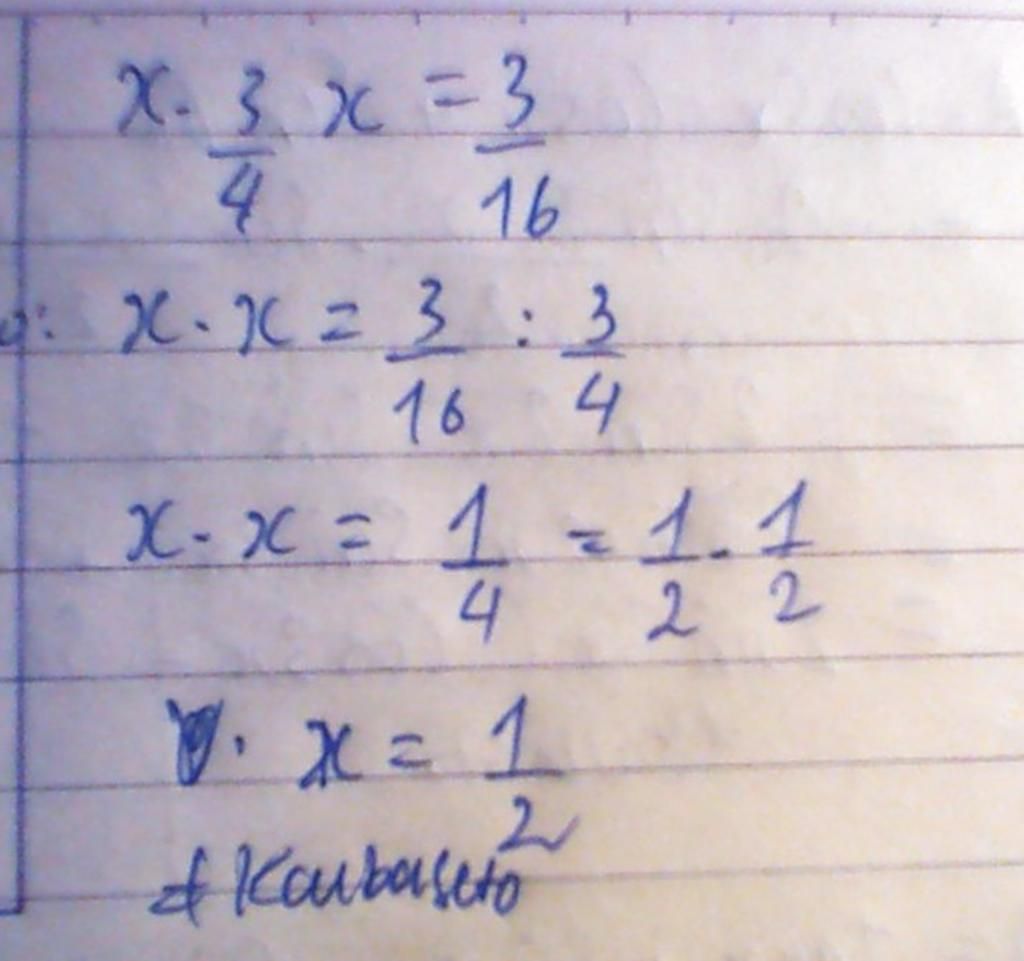 x. 3/4 x = 3/16
: x.x = 3/16 : 3/4
x.x = 1/4 = 1/2.1/2
. x = 1/2